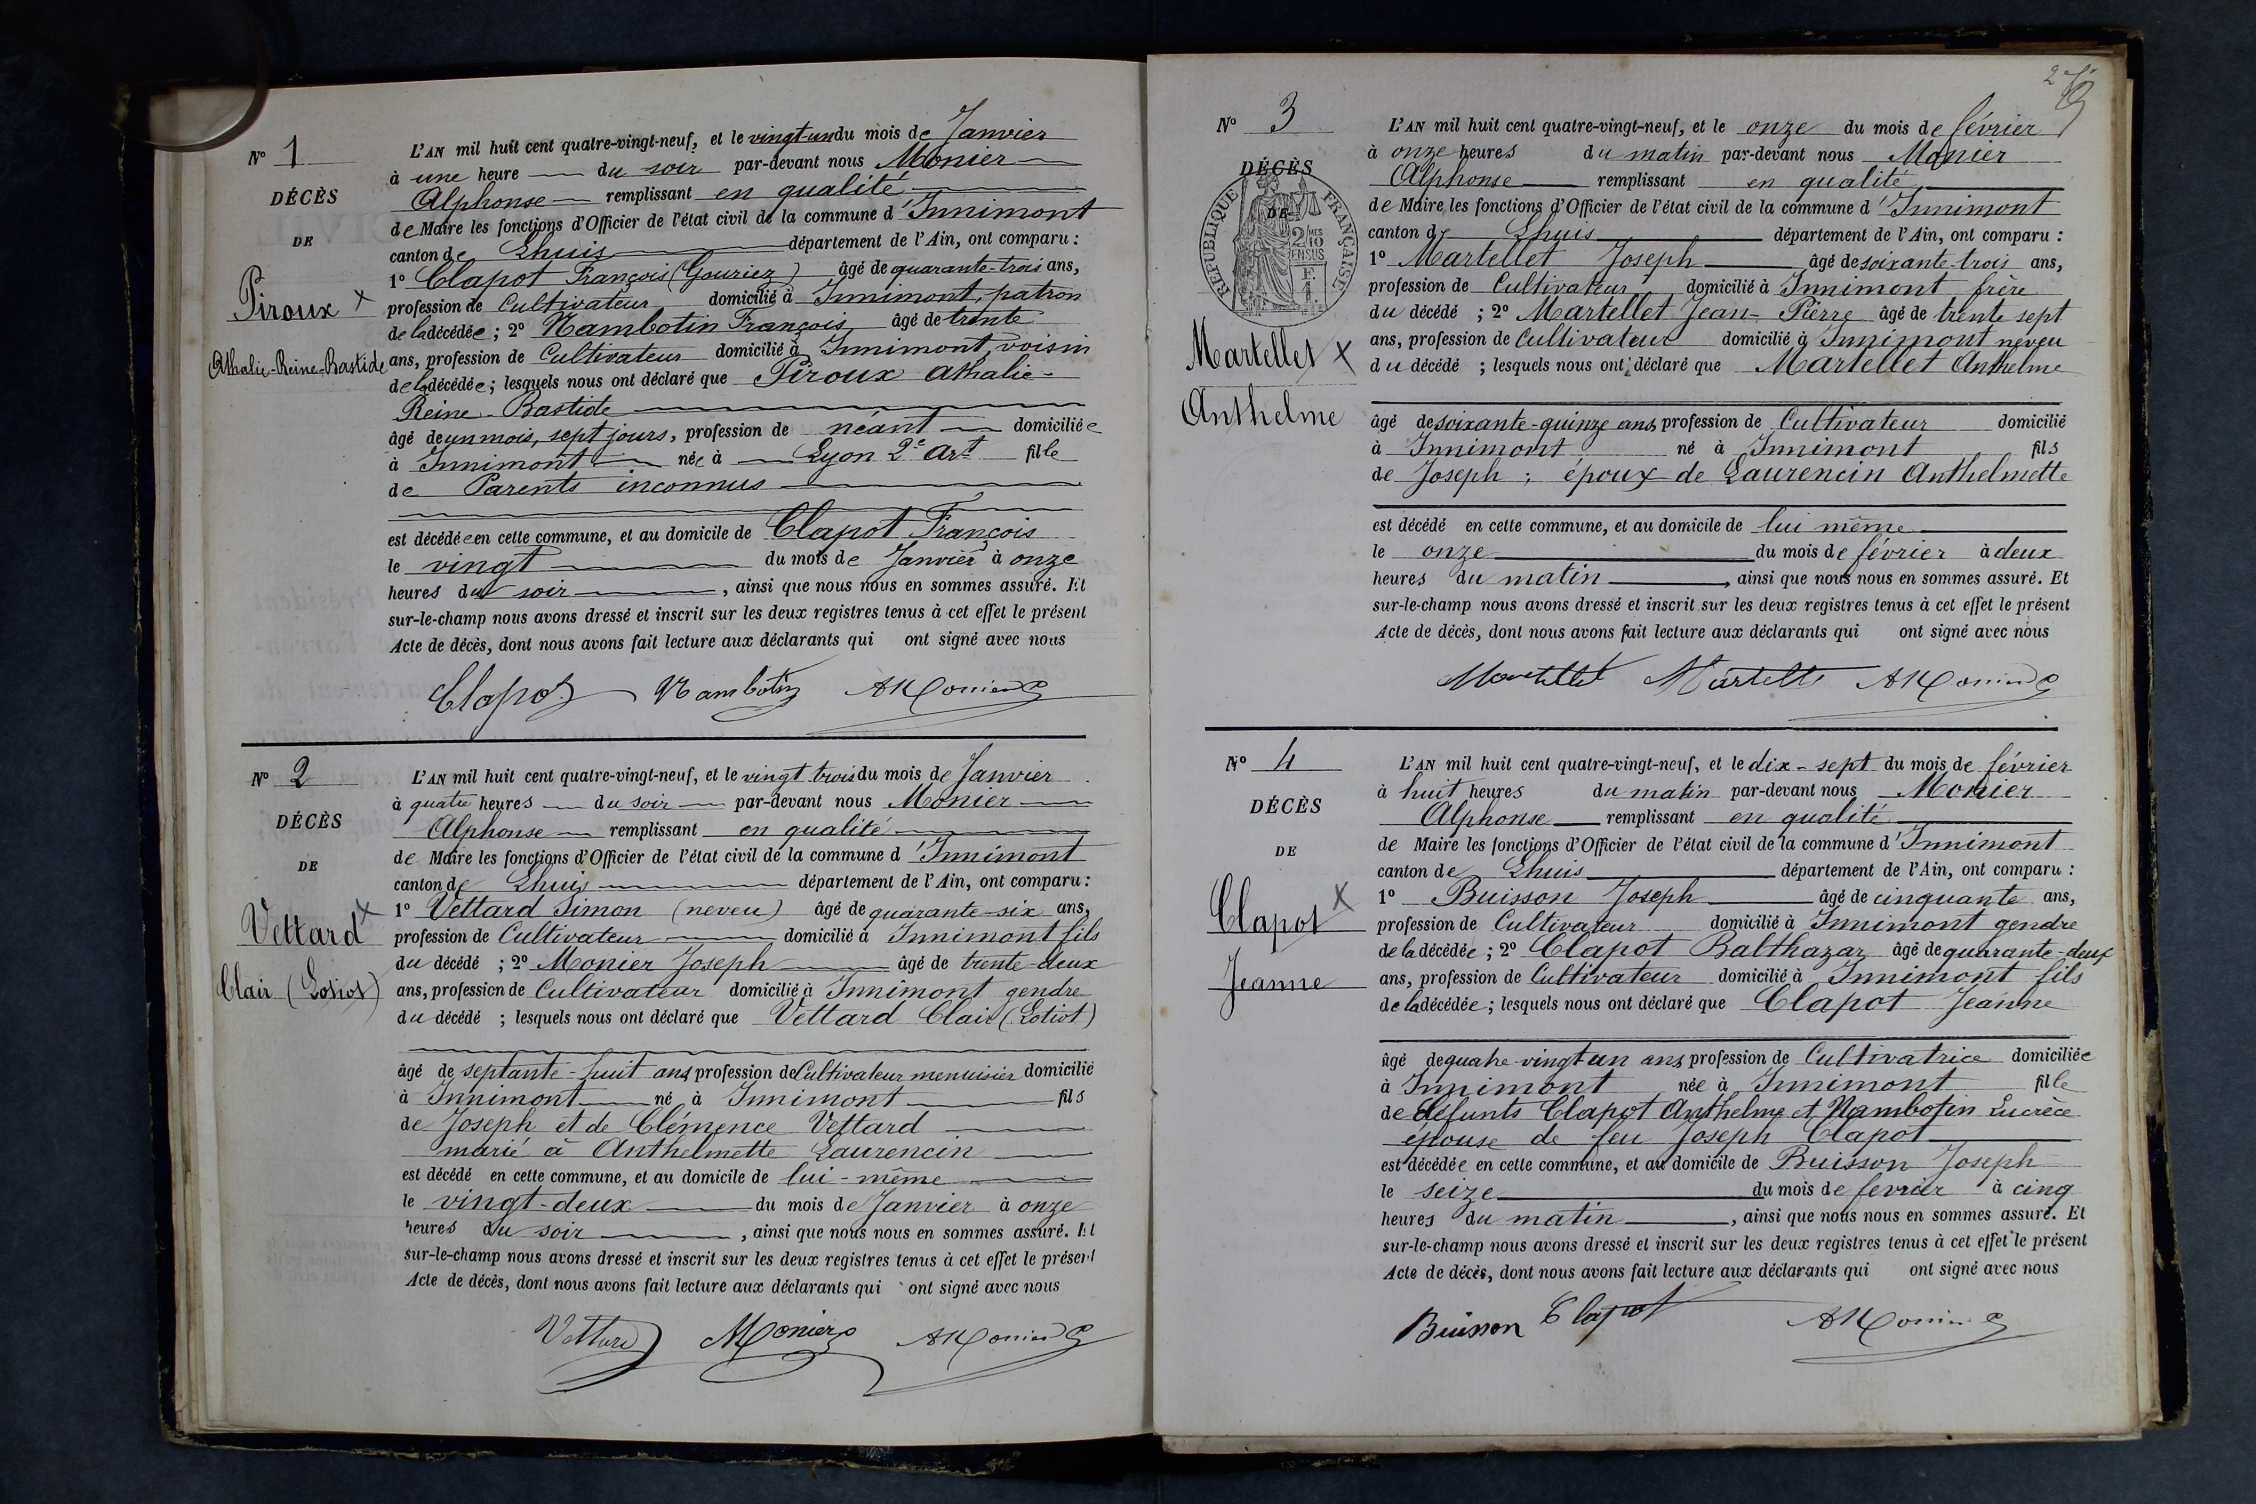 N° 1
DÉCÈS
DE
Piroux x
Athalie-Reine-Bastide
L'AN mil huit cent quatre-vingt-neuf, et le vingt-un du mois de Janvier
à une heure du soir par-devant nous Monier
Alphonse remplissant en qualité
de Maire les fonctions d'Officier de l'état civil de la commune d'Innimont
canton de Lhuis département de l'Ain, ont comparu :
1° Clapot François (Gouriez) âgé de quarante-trois ans,
profession de Cultivateur domicilié à Innimont, patron
de la décédée ; 2° Nambotin François âgé de trente
ans, profession de Cultivateur domicilié à Innimont, voisin
de la décédée ; lesquels nous ont déclaré que Piroux Athalie-
Reine-Bastide
âgé de un mois, sept jours, profession de néant domiciliée
à Innimont née à Lyon 2e Art fille
de Parents inconnus
est décédée en cette commune, et au domicile de Clapot François
le vingt du mois de Janvier à onze
heures du soir, ainsi que nous nous en sommes assuré. Et
sur-le-champ nous avons dressé et inscrit sur les deux registres tenus à cet effet le présent
Acte de décès, dont nous avons fait lecture aux déclarants qui ont signé avec nous
Clapot Nambotin A Monier
N° 2
DÉCÈS
DE
Vettard x
Clair (Lotiot)
L'AN mil huit cent quatre-vingt-neuf, et le vingt trois du mois de Janvier
à quatre heures du soir par-devant nous Monier
Alphonse remplissant en qualité
de Maire les fonctions d'Officier de l'état civil de la commune d'Innimont
canton de Lhuis département de l'Ain, ont comparu :
1° Vettard Simon (neveu) âgé de quarante-six ans,
profession de Cultivateur domicilié à Innimont fils
du décédé ; 2° Monier Joseph âgé de trente-deux
ans, profession de Cultivateur domicilié à Innimont gendre
du décédé ; lesquels nous ont déclaré que Vettard Clair (Lotiot)
âgé de septante-huit ans profession de Cultivateur menuisier domicilié
à Innimont né à Innimont fils
de Joseph et de Clémence Vettard
marié à Anthelmette Laurencin
est décédé en cette commune, et au domicile de lui-même
le vingt-deux du mois de Janvier à onze
heures du soir, ainsi que nous nous en sommes assuré. Et
sur-le-champ nous avons dressé et inscrit sur les deux registres tenus à cet effet le présent
Acte de décès, dont nous avons fait lecture aux déclarants qui ont signé avec nous
Vettard Monier A Monier
N° 3
DÉCÈS
DE
RÉPUBLIQUE FRANÇAISE
2 MES
10
EN SUS
Martellet x
Anthelme
L'AN mil huit cent quatre-vingt-neuf, et le onze du mois de février
à onze heures du matin par-devant nous Monier
Alphonse remplissant en qualité
de Maire les fonctions d'Officier de l'état civil de la commune d'Innimont
canton de Lhuis département de l'Ain, ont comparu :
1° Martellet Joseph âgé de soixante-trois ans,
profession de Cultivateur domicilié à Innimont frère
du décédé ; 2° Martellet Jean-Pierre âgé de trente sept
ans, profession de Cultivateur domicilié à Innimont neveu
du décédé ; lesquels nous ont déclaré que Martellet Anthelme
âgé de soixante-quinze ans profession de Cultivateur domicilié
à Innimont né à Innimont fils
de Joseph ; époux de Laurencin Anthelmette
est décédé en cette commune, et au domicile de lui même
le onze du mois de février à deux
heures du matin, ainsi que nous nous en sommes assuré. Et
sur-le-champ nous avons dressé et inscrit sur les deux registres tenus à cet effet le présent
Acte de décès, dont nous avons fait lecture aux déclarants qui ont signé avec nous
Martellet Martellet A Monier
N° 4
DÉCÈS
DE
Clapot x
Jeanne
L'AN mil huit cent quatre-vingt-neuf, et le dix-sept du mois de février
à huit heures du matin par-devant nous Monier
Alphonse remplissant en qualité
de Maire les fonctions d'Officier de l'état civil de la commune d'Innimont
canton de Lhuis département de l'Ain, ont comparu :
1° Buisson Joseph âgé de cinquante ans,
profession de Cultivateur domicilié à Innimont gendre
de la décédée ; 2° Clapot Balthazar âgé de quarante-deux
ans, profession de Cultivateur domicilié à Innimont fils
de la décédée ; lesquels nous ont déclaré que Clapot Jeanne
âgé de quatre-vingt un ans profession de Cultivatrice domiciliée
à Innimont née à Innimont fille
de défunts Clapot Anthelme et Nambotin Lucrèce
épouse de feu Joseph Clapot
est décédée en cette commune, et au domicile de Buisson Joseph
le seize du mois de fevrier à cinq
heures du matin, ainsi que nous nous en sommes assuré. Et
sur-le-champ nous avons dressé et inscrit sur les deux registres tenus à cet effet le présent
Acte de décès, dont nous avons fait lecture aux déclarants qui ont signé avec nous
Buisson Clapot A Monier